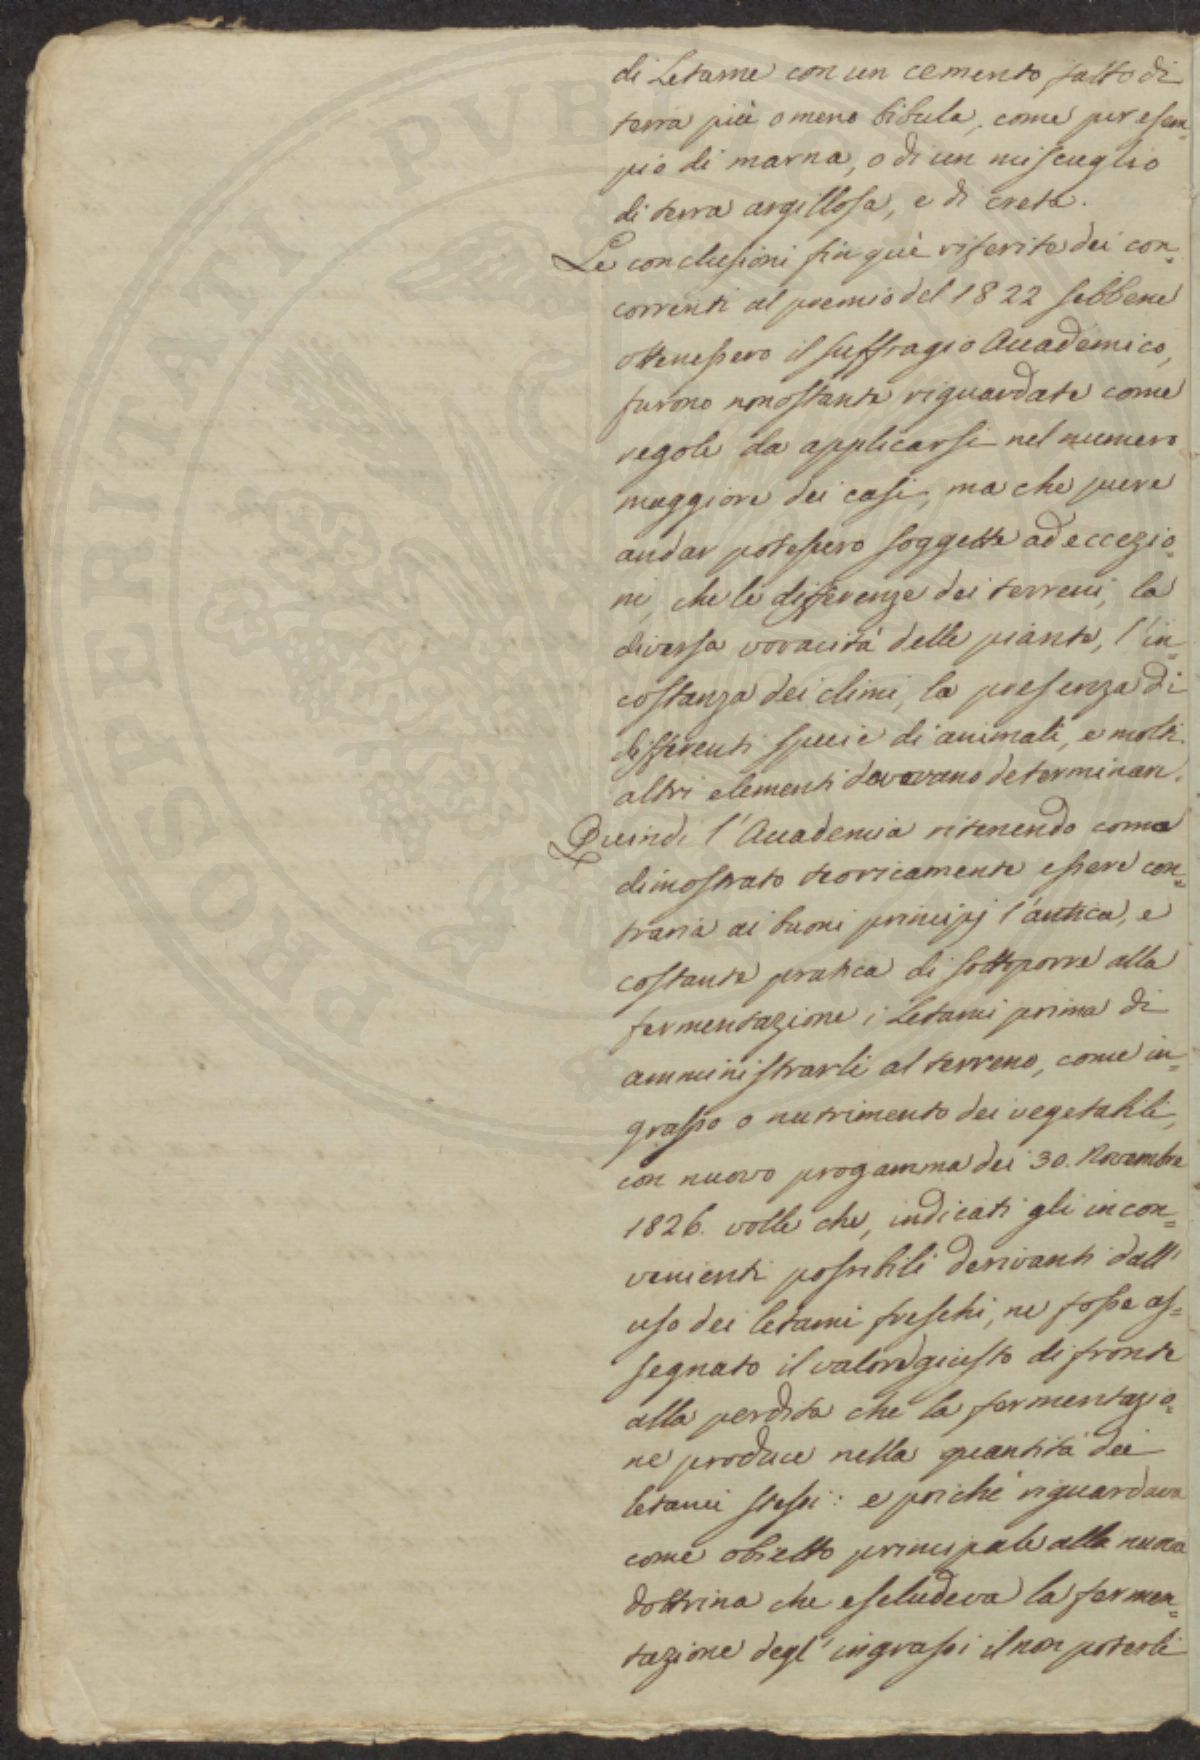 di Letame con un cemento fatto di
terra più o meno bibula, come per esem=
pio di marna, o di un miscuglio
di terra argillosa, e di creta.
Le conclusioni fin quì riferite dei con=
correnti al premio del 1822 sebbene
ottenessero il suffragio Accademico,
furono nonostante riguardate come
regole da applicarsi nel numero
maggiore dei casi, ma che pure
andar potessero soggette ad eccezio=
ni, che le differenze dei terreni, la
diversa voracità delle piante, l'in=
costanza dei climi, la presenza di
differenti specie di animali, e molti
altri elementi dovevano determinare.
Quindi l'Accademia ritenendo come
dimostrato teoricamente essere con=
traria ai buoni principj l'antica, e
costante pratica di sottoporre alla
fermentazione i Letami prima di
amministrarli al terreno, come in=
grasso o nutrimento dei vegetabili,
con nuovo progamma dei 30. Novembre
1826. volle che, indicati gli incon=
venienti possibili derivanti dall'
uso dei letami freschi, ne fosse as=
segnato il valore giusto di fronte
alla perdita che la fermentazio=
ne produce nella quantità dei
letami stessi: e poichè riguardava
come obietto principale alla nuova
dottrina che escludeva la fermen=
tazione degl'ingrassi il non poterli
PROSPERITATI PVBLICAE